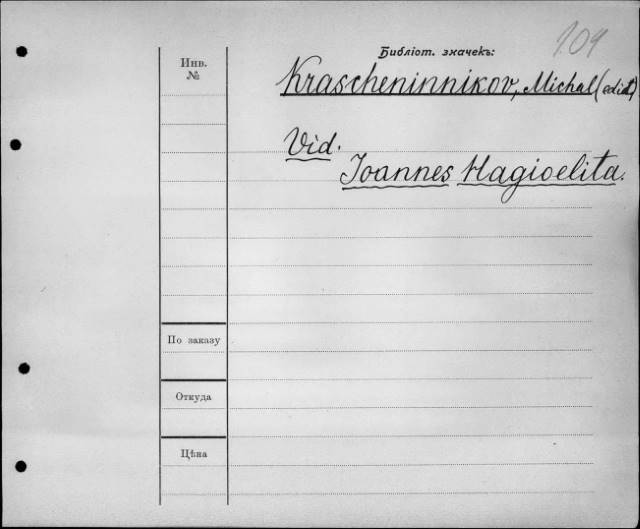 104
Библіот. значекъ:
Инв.
№
Krascheninnikov, Michal (edidt)
Vid.
Joannes Hagioelita.
По заказу
Откуда
Цѣна